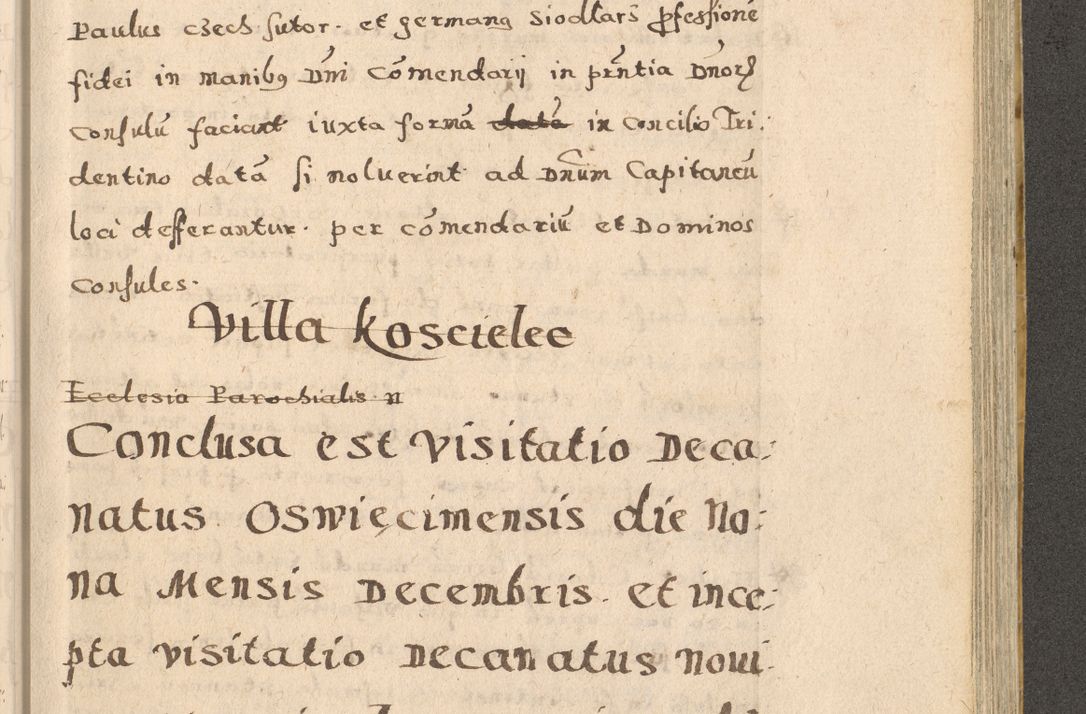 Paulus czech sutor. et germanꝯ siodlars ꝓfessione
fidei in manibꝯ Dn̄i Cōmendarij in prn̄tia Dnorꝝ
Consulū faciant iuxta formā datā in Concilio Tri:
dentino datā si noluerint ad Dnūm Capitaneū
loci defferantur. per cōmendariū et Dominos
Consules.
Villa Koscielee
Ecclesia Parochialis n
Conclusa est Visitatio Deca:
natus Oswięcimensis die No:
na Mensis Decembris. et ince:
pta visitatio Decanatus Noui: